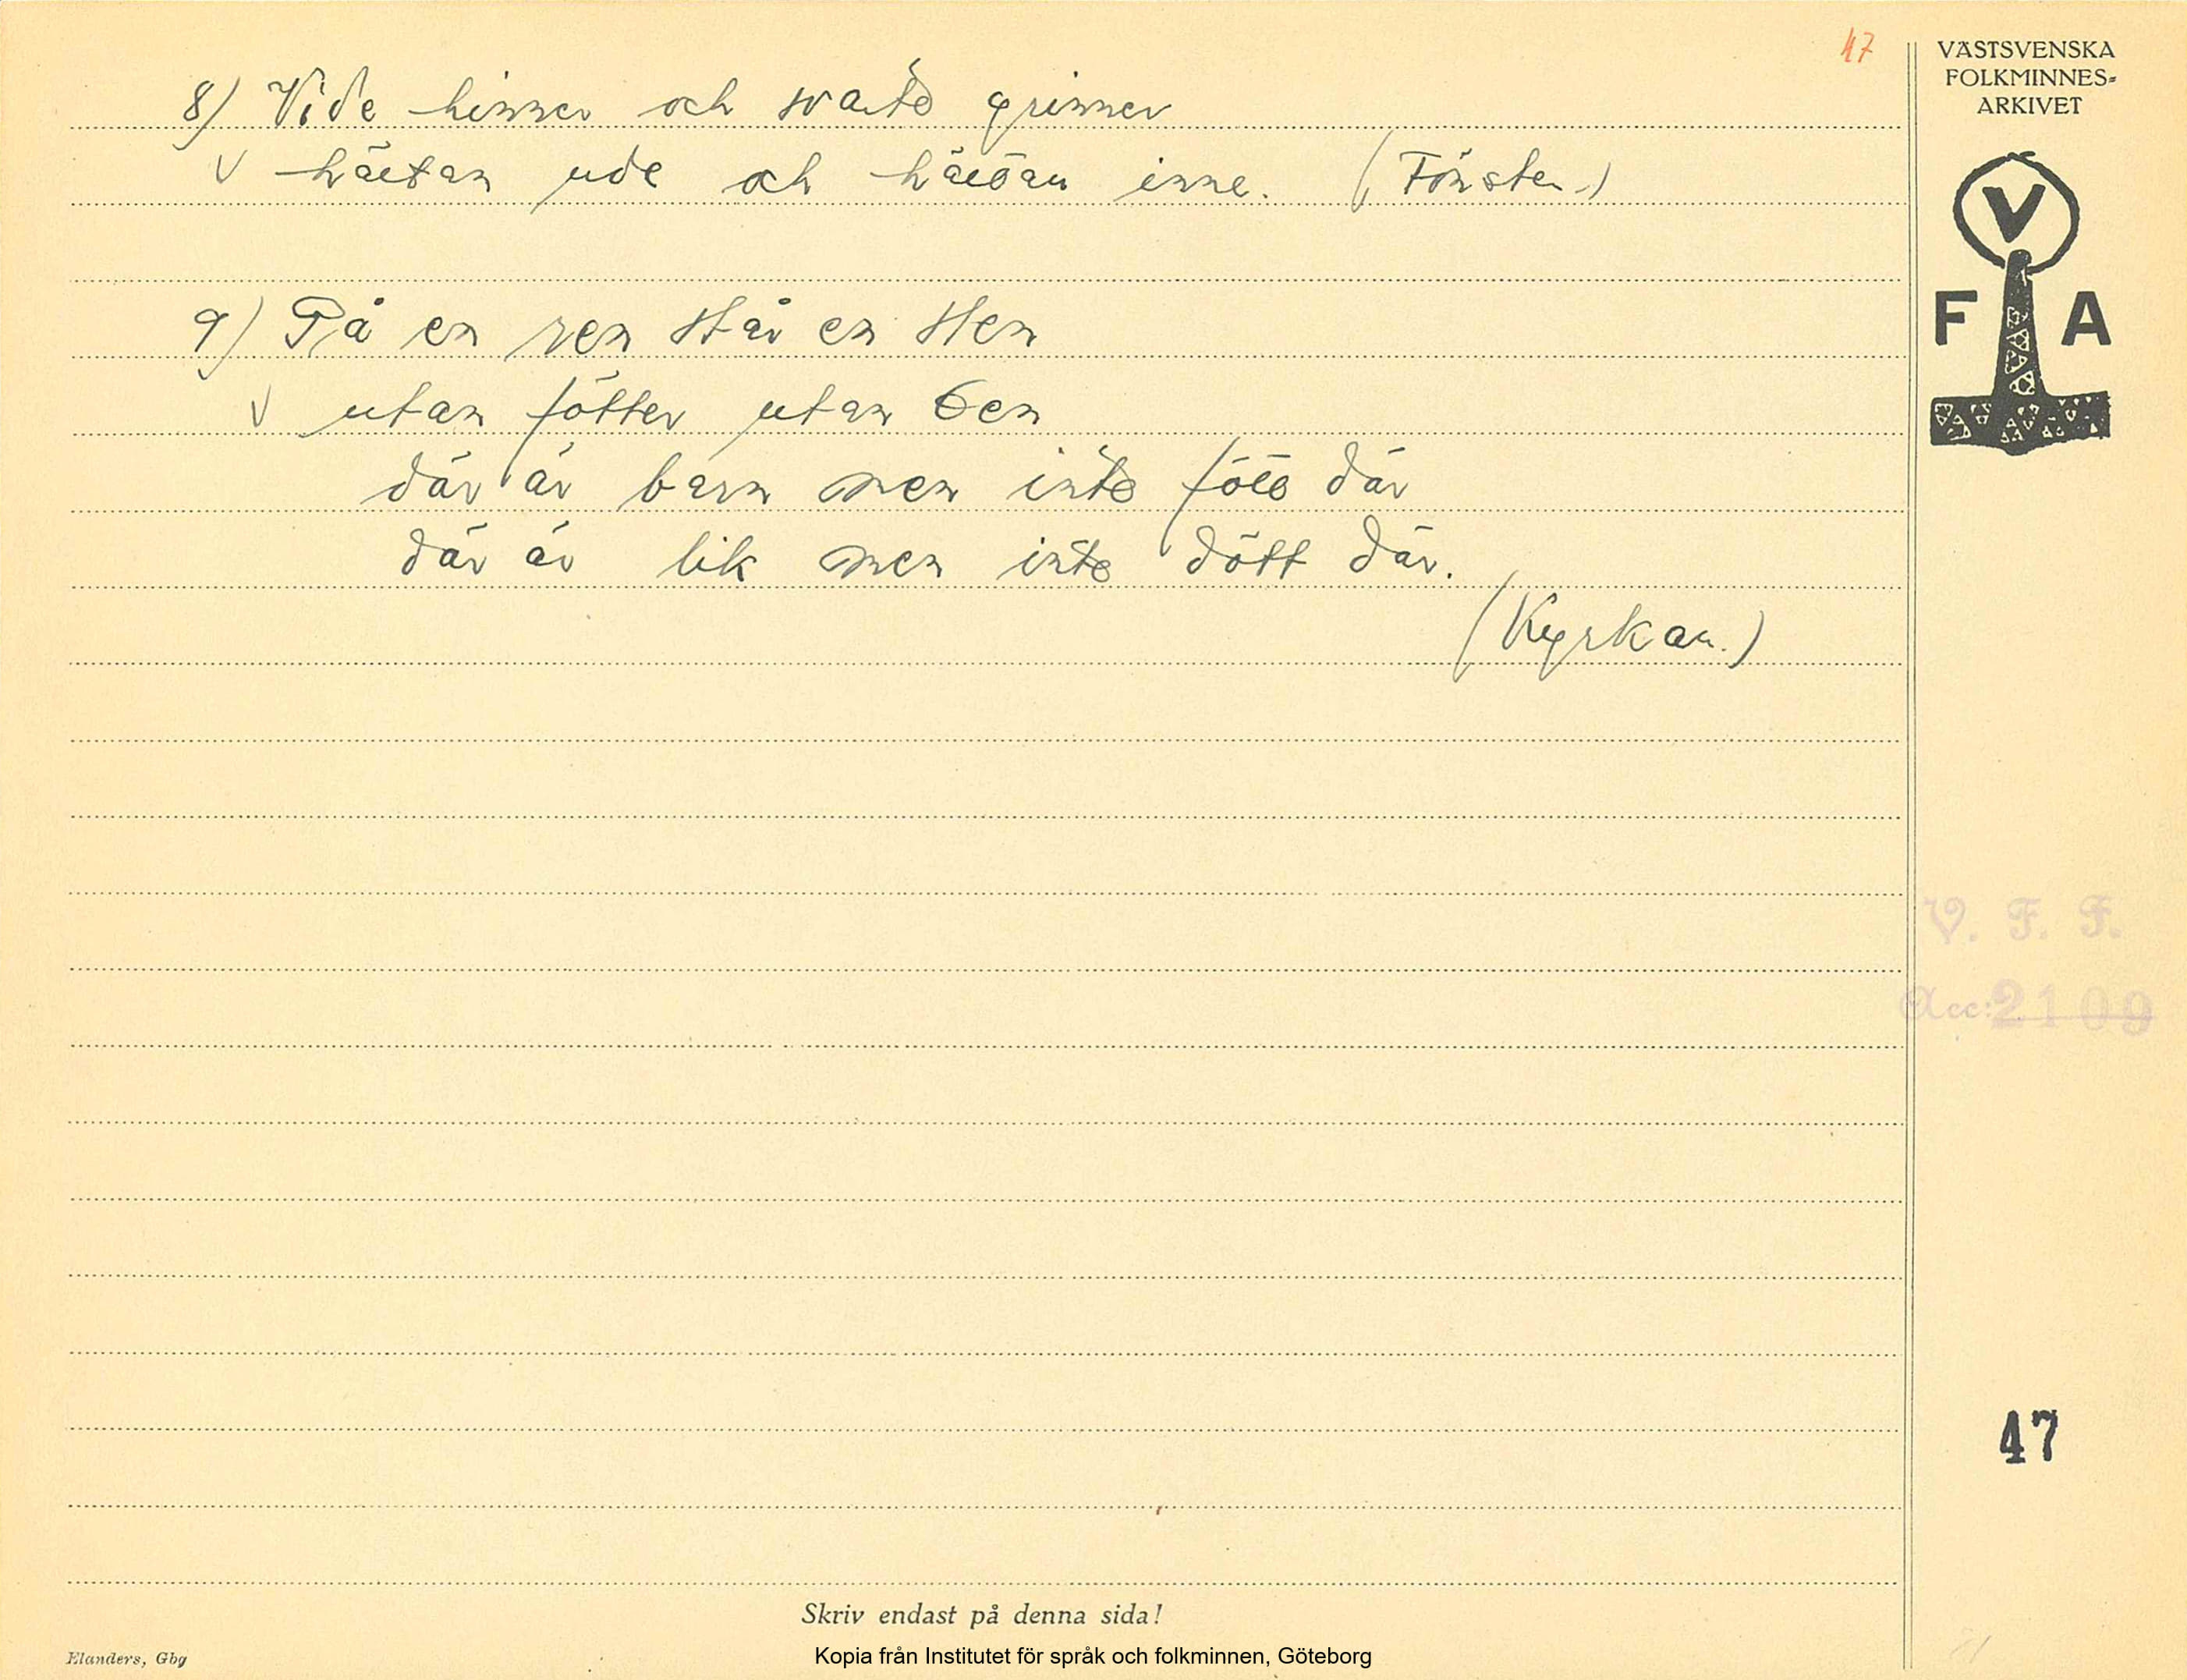 47
8) Vide hinner och svarte grinner
V hälftan ude och hälftan inne. (Fönster.)
9) På en ren står en sten
V utan fötter utan ben
där är barn men inte född där
där är lik men inte dött där.
(Kyrkan.)
VÄSTSVENSKA
FOLKMINNES=
ARKIVET
V
F A
V. F. F.
Acc: 2109
47
Skriv endast på denna sida!
Elanders, Gbg
Kopia från Institutet för språk och folkminnen, Göteborg